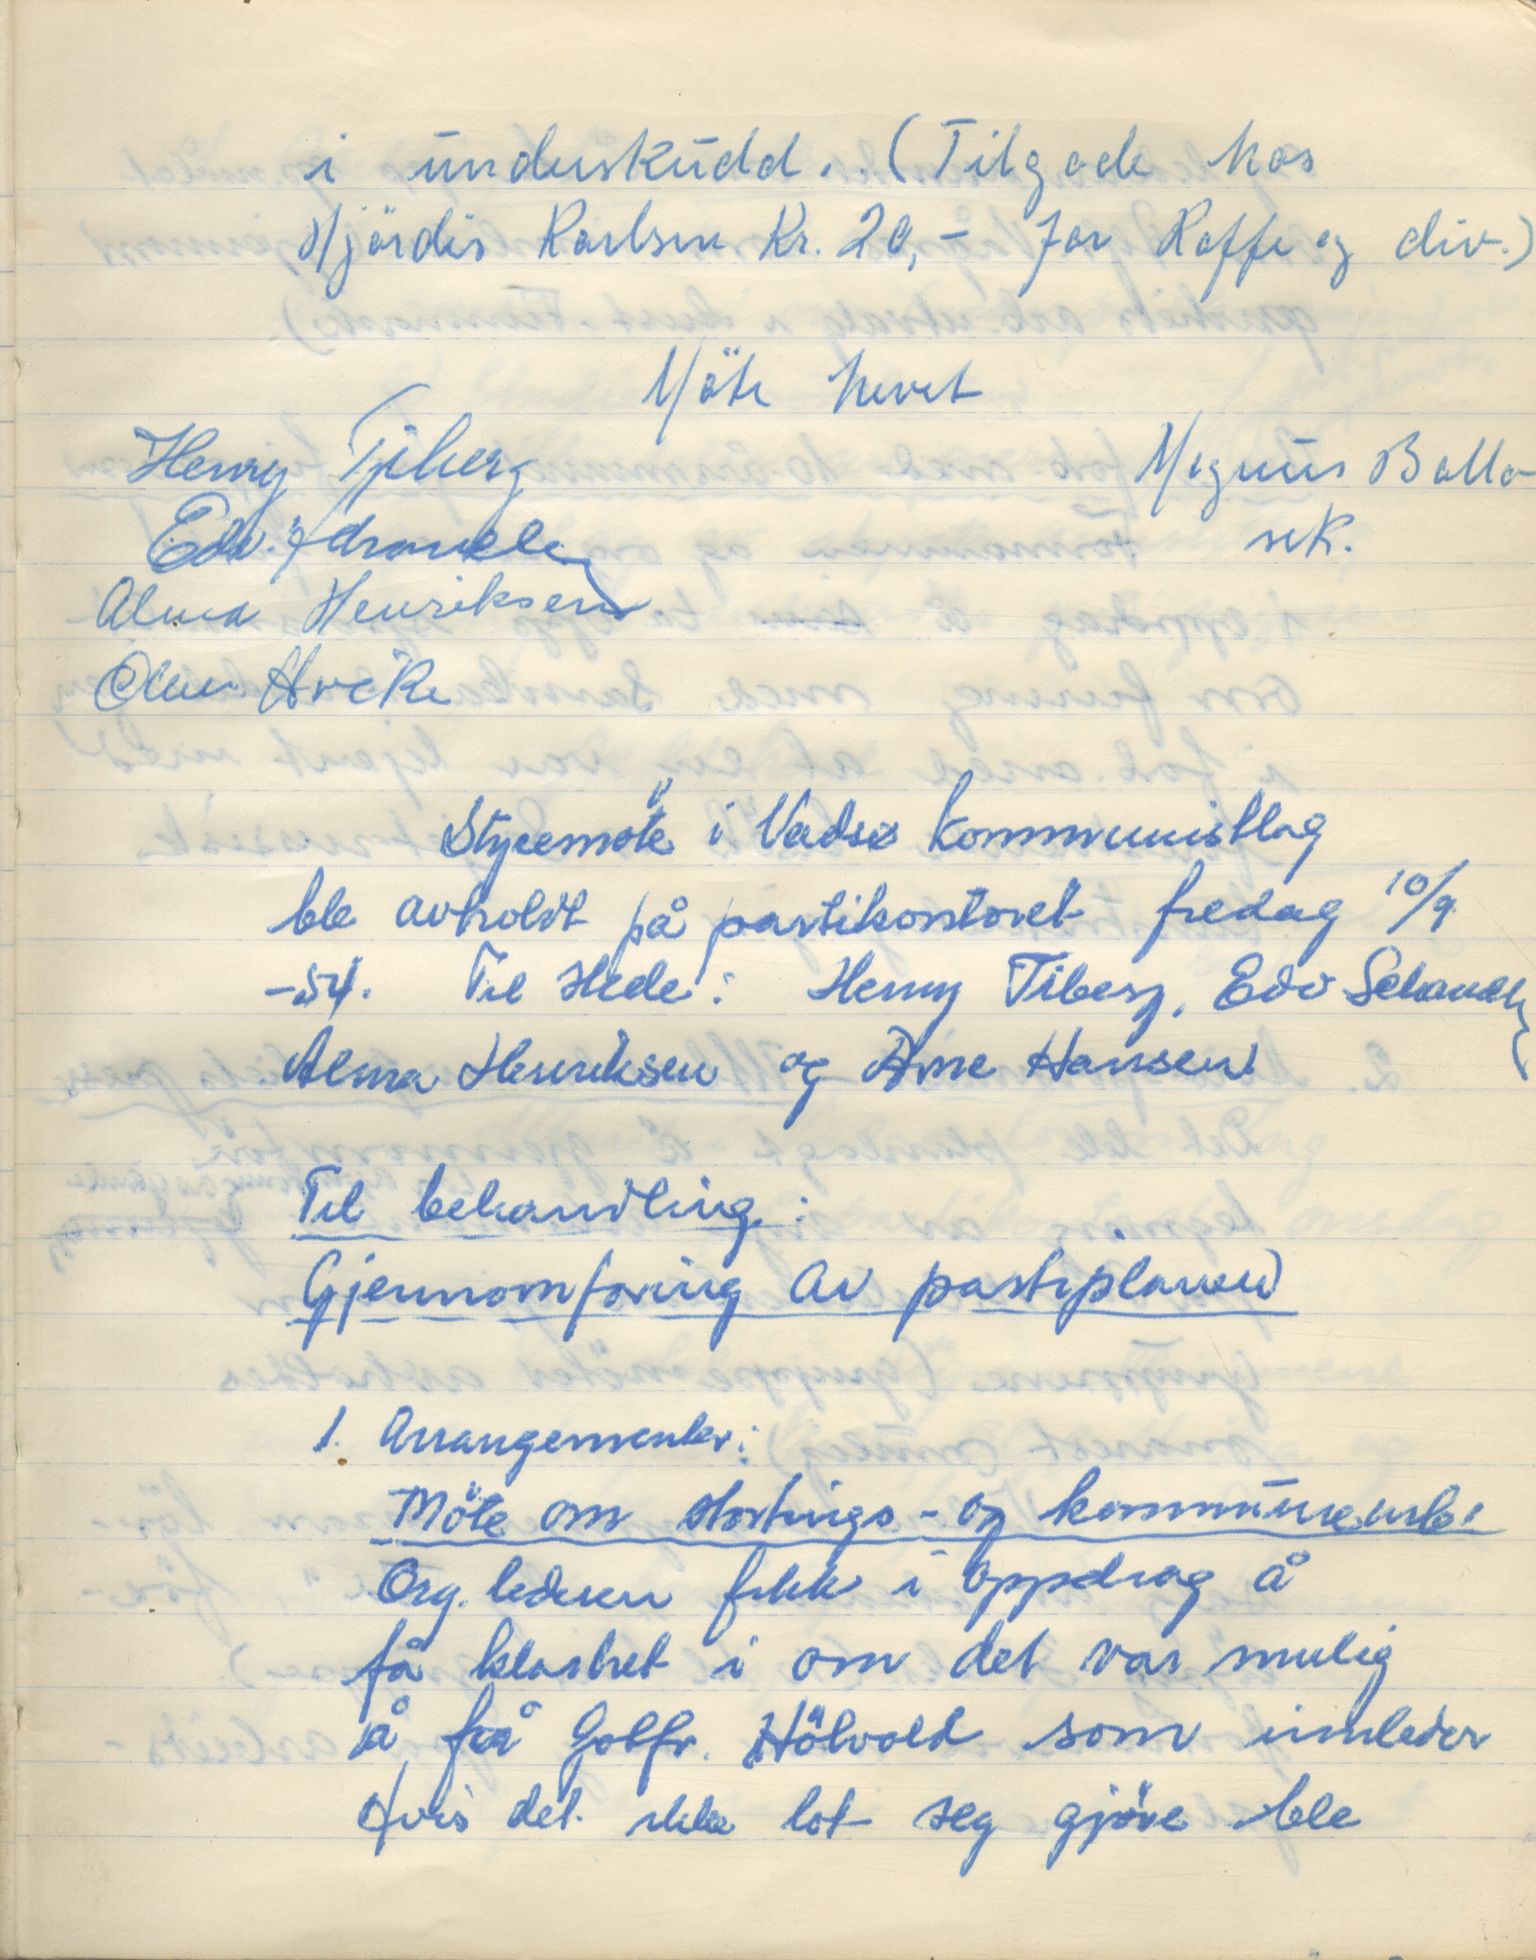 i underskudd. (Tilgode hos
Hjördis Karlsen Kr. 20,- for Kaffe og div.)
Möte hevet
Henry Tjiberg
Magnus Balla
Edv.
sek.
Alma Henriksen
Styremöte i Vadsø Kommunistlag
ble avholdt på partikontoret fredag 10/9
-54. Til stede: Henry Tiberg, Edv
Alma Henriksen og Arne Hansen
Til behandling:
Gjennomføring av partiplanen
1. Arrangementer:
Möte om stortings- og kommunearb.
Org. lederen fikk i oppdrag å
få klarhet i om det var mulig
å få Gotfr. Hölvold som innleder
Hvis det ikke lot seg gjöre ble